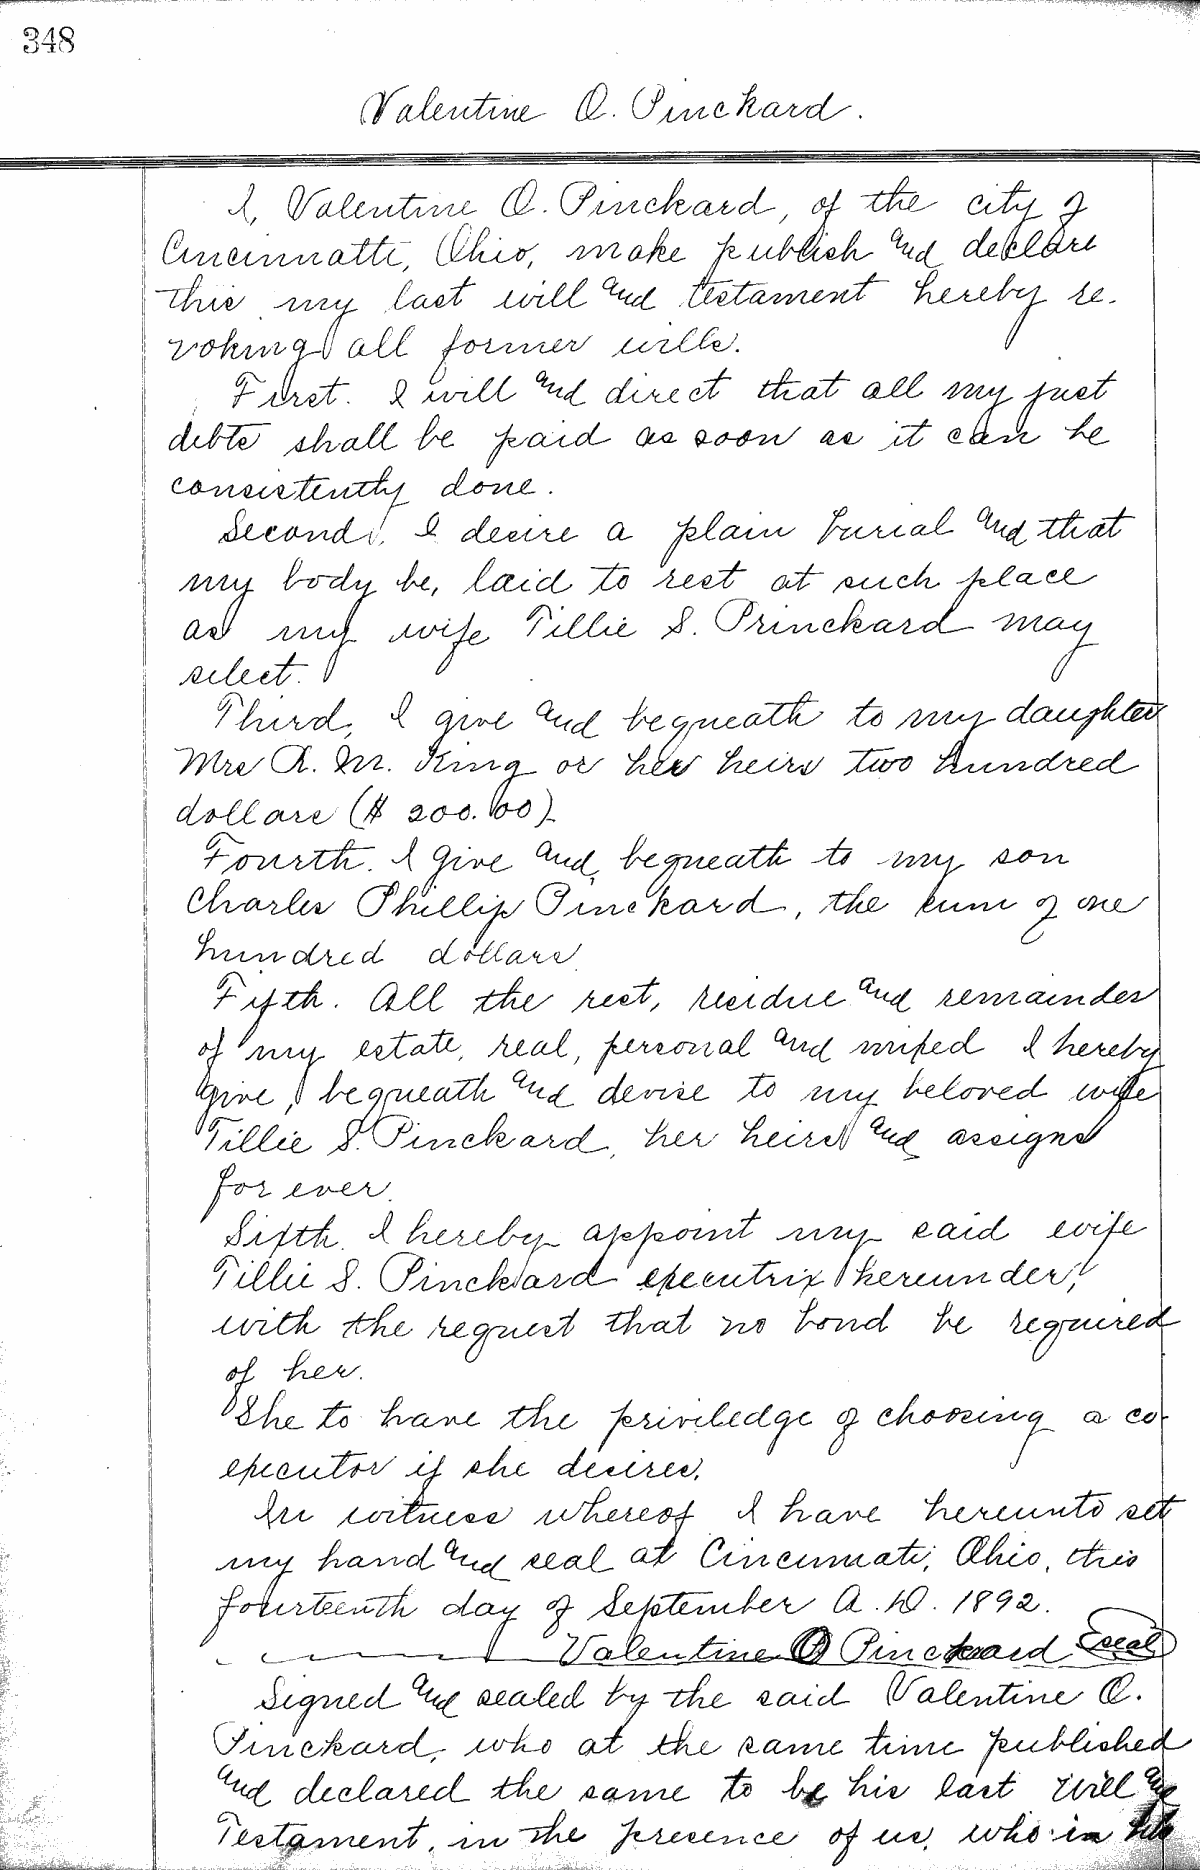 348
Valentine O. Pinckard.
I, Valentine O. Pinckard, of the city of
Cincinnatti, Ohio, make publish and declare
this my last will and testament hereby re-
voking all former wills.
First. I will and direct that all my just
debts shall be paid as soon as it can be
consistently done.
Second. I desire a plain burial and that
my body be, laid to rest at such place
as my wife Tillie S. Princkard may
select.
Third, I give and bequeath to my daughter
Mrs R. M. King or her heirs two hundred
dollars ($ 200.00).
Fourth. I give and bequeath to my son
Charles Phillip Pinckard, the sum of one
hundred dollars.
Fifth. All the rest, residue and remainder
of my estate, real, personal and mixed I hereby
give, bequeath and devise to my beloved wife
Tillie S. Pinckard, her heirs and assigns
for ever.
Sixth. I hereby appoint my said wife
Tillie S. Pinckard executrix hereunder,
with the request that no bond be required
of her.
She to have the priviledge of choosing a co-
executor if she desires.
In witness whereof I have hereunto set
my hand and seal at Cincinnati, Ohio, this
fourteenth day of September A. D. 1892.
Valentine O Pinckard (seal)
Signed and sealed by the said Valentine O.
Pinckard, who at the same time published
and declared the same to be his last will and
Testament, in the presence of us, who in his